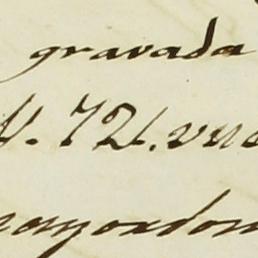 gravada
N. 721. vue
mayordom